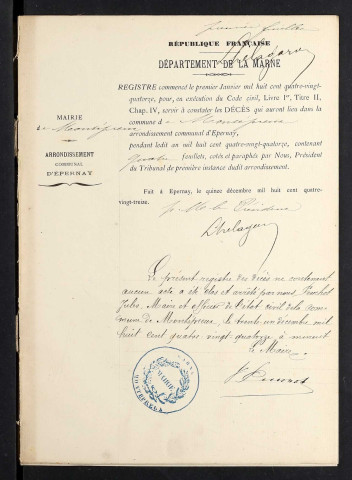 premier feuillet
Delagarde
RÉPUBLIQUE FRANÇAISE
DÉPARTEMENT DE LA MARNE
MAIRIE
de Montépreux
ARRONDISSEMENT
COMMUNAL
D'ÉPERNAY
REGISTRE commencé le premier Janvier mil huit cent quatre-vingt-
quatorze, pour, en exécution du Code civil, Livre Ier, Titre II,
Chap. IV, servir à constater les DÉCÈS qui auront lieu dans la
commune de Montépreux
arrondissement communal d'Epernay,
pendant ledit an mil huit cent quatre-vingt-quatorze, contenant
quatre feuillets, cotés et paraphés par Nous, Président
du Tribunal de première instance dudit arrondissement.
Fait à Epernay, le quinze décembre mil huit cent quatre-
vingt-treize.
p. Mr le Président
Le présent registre des décès ne contenant
aucun acte a été clos et arrêté par nous
Jules, Maire et officier de l'état civil de la com-
mune de Montépreux, le trente un décembre mil
huit cent quatre vingt quatorze à minuit
Le Maire
MAIRIE
MARNE
MONTÉPREUX